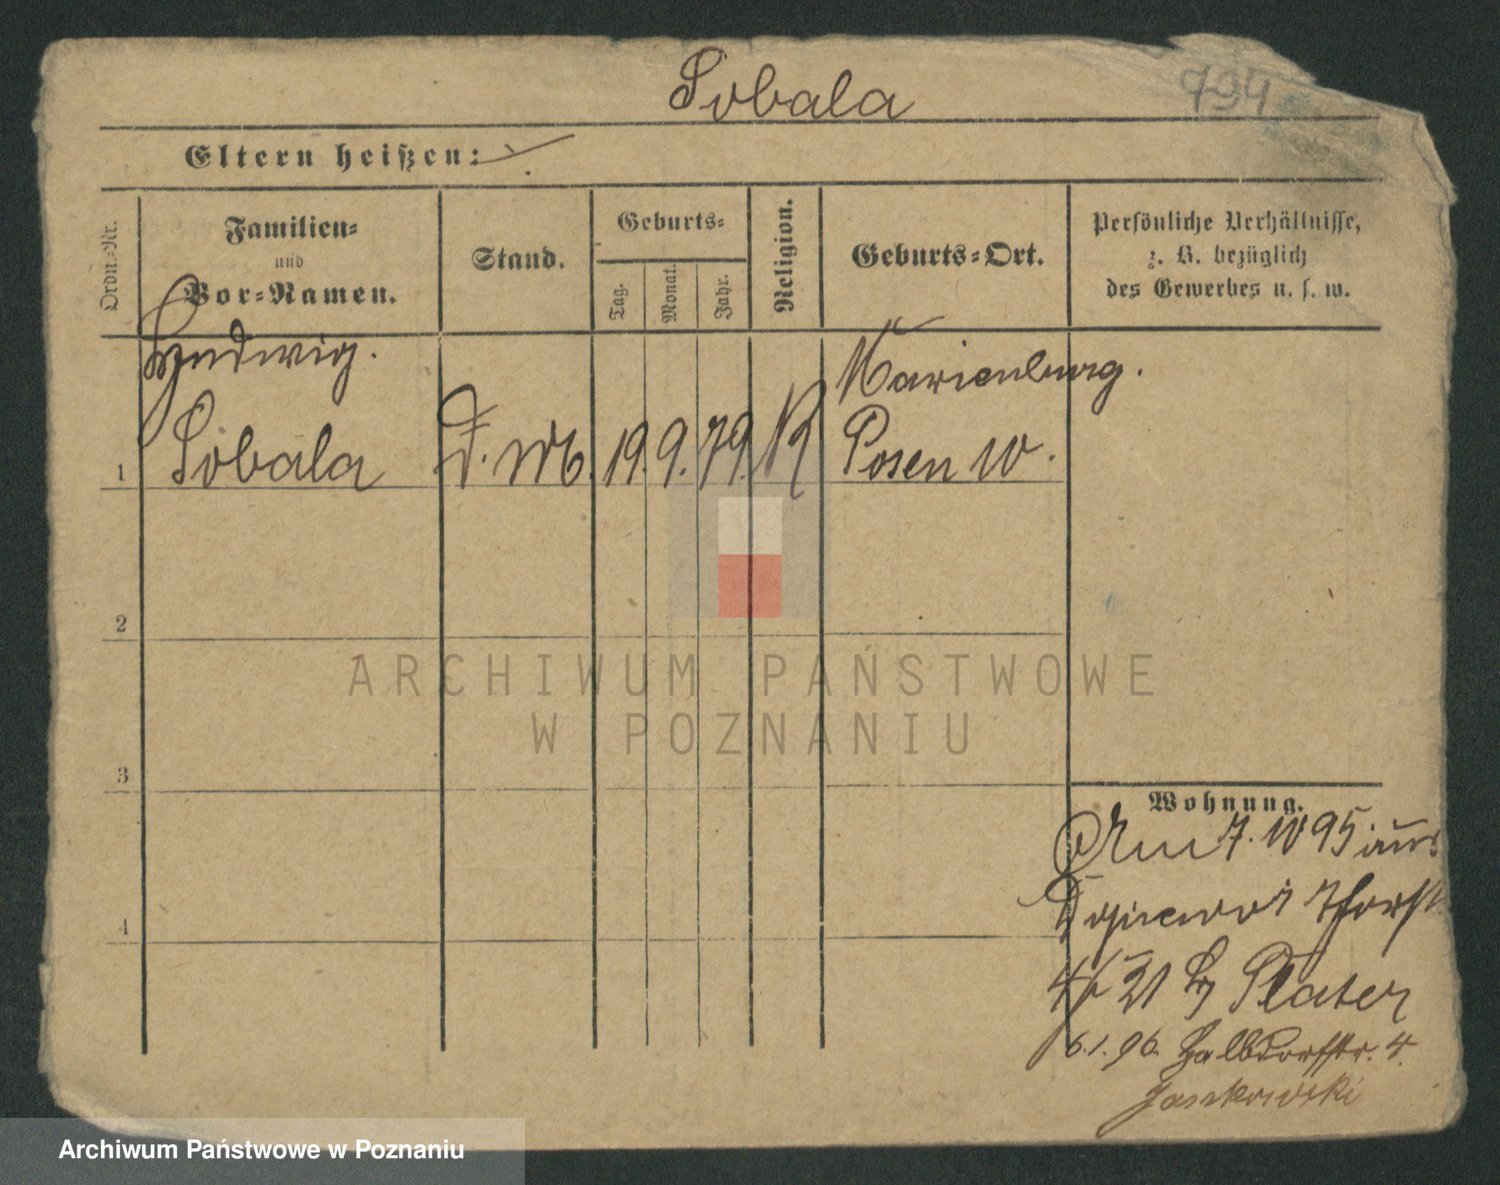 Sobala
794
Eltern heißen:
Ordn.-Nr.
Familien-
und
Vor-Namen.
Stand.
Geburts-
Tag.
Monat.
Jahr.
Religion.
Geburts-Ort.
Persönliche Verhältnisse,
z. B. bezüglich
des Gewerbes u. s. w.
Hedwig.
Marienburg.
1 Sobala D. M. 19. 9. 79. K Posen W.
2
3
4
Wohnung.
7. 10 95 aus
21 Plater
6.1.96. Halbdorfstr. 4.
Jaszkowski
ARCHIWUM PAŃSTWOWE
W POZNANIU
Archiwum Państwowe w Poznaniu